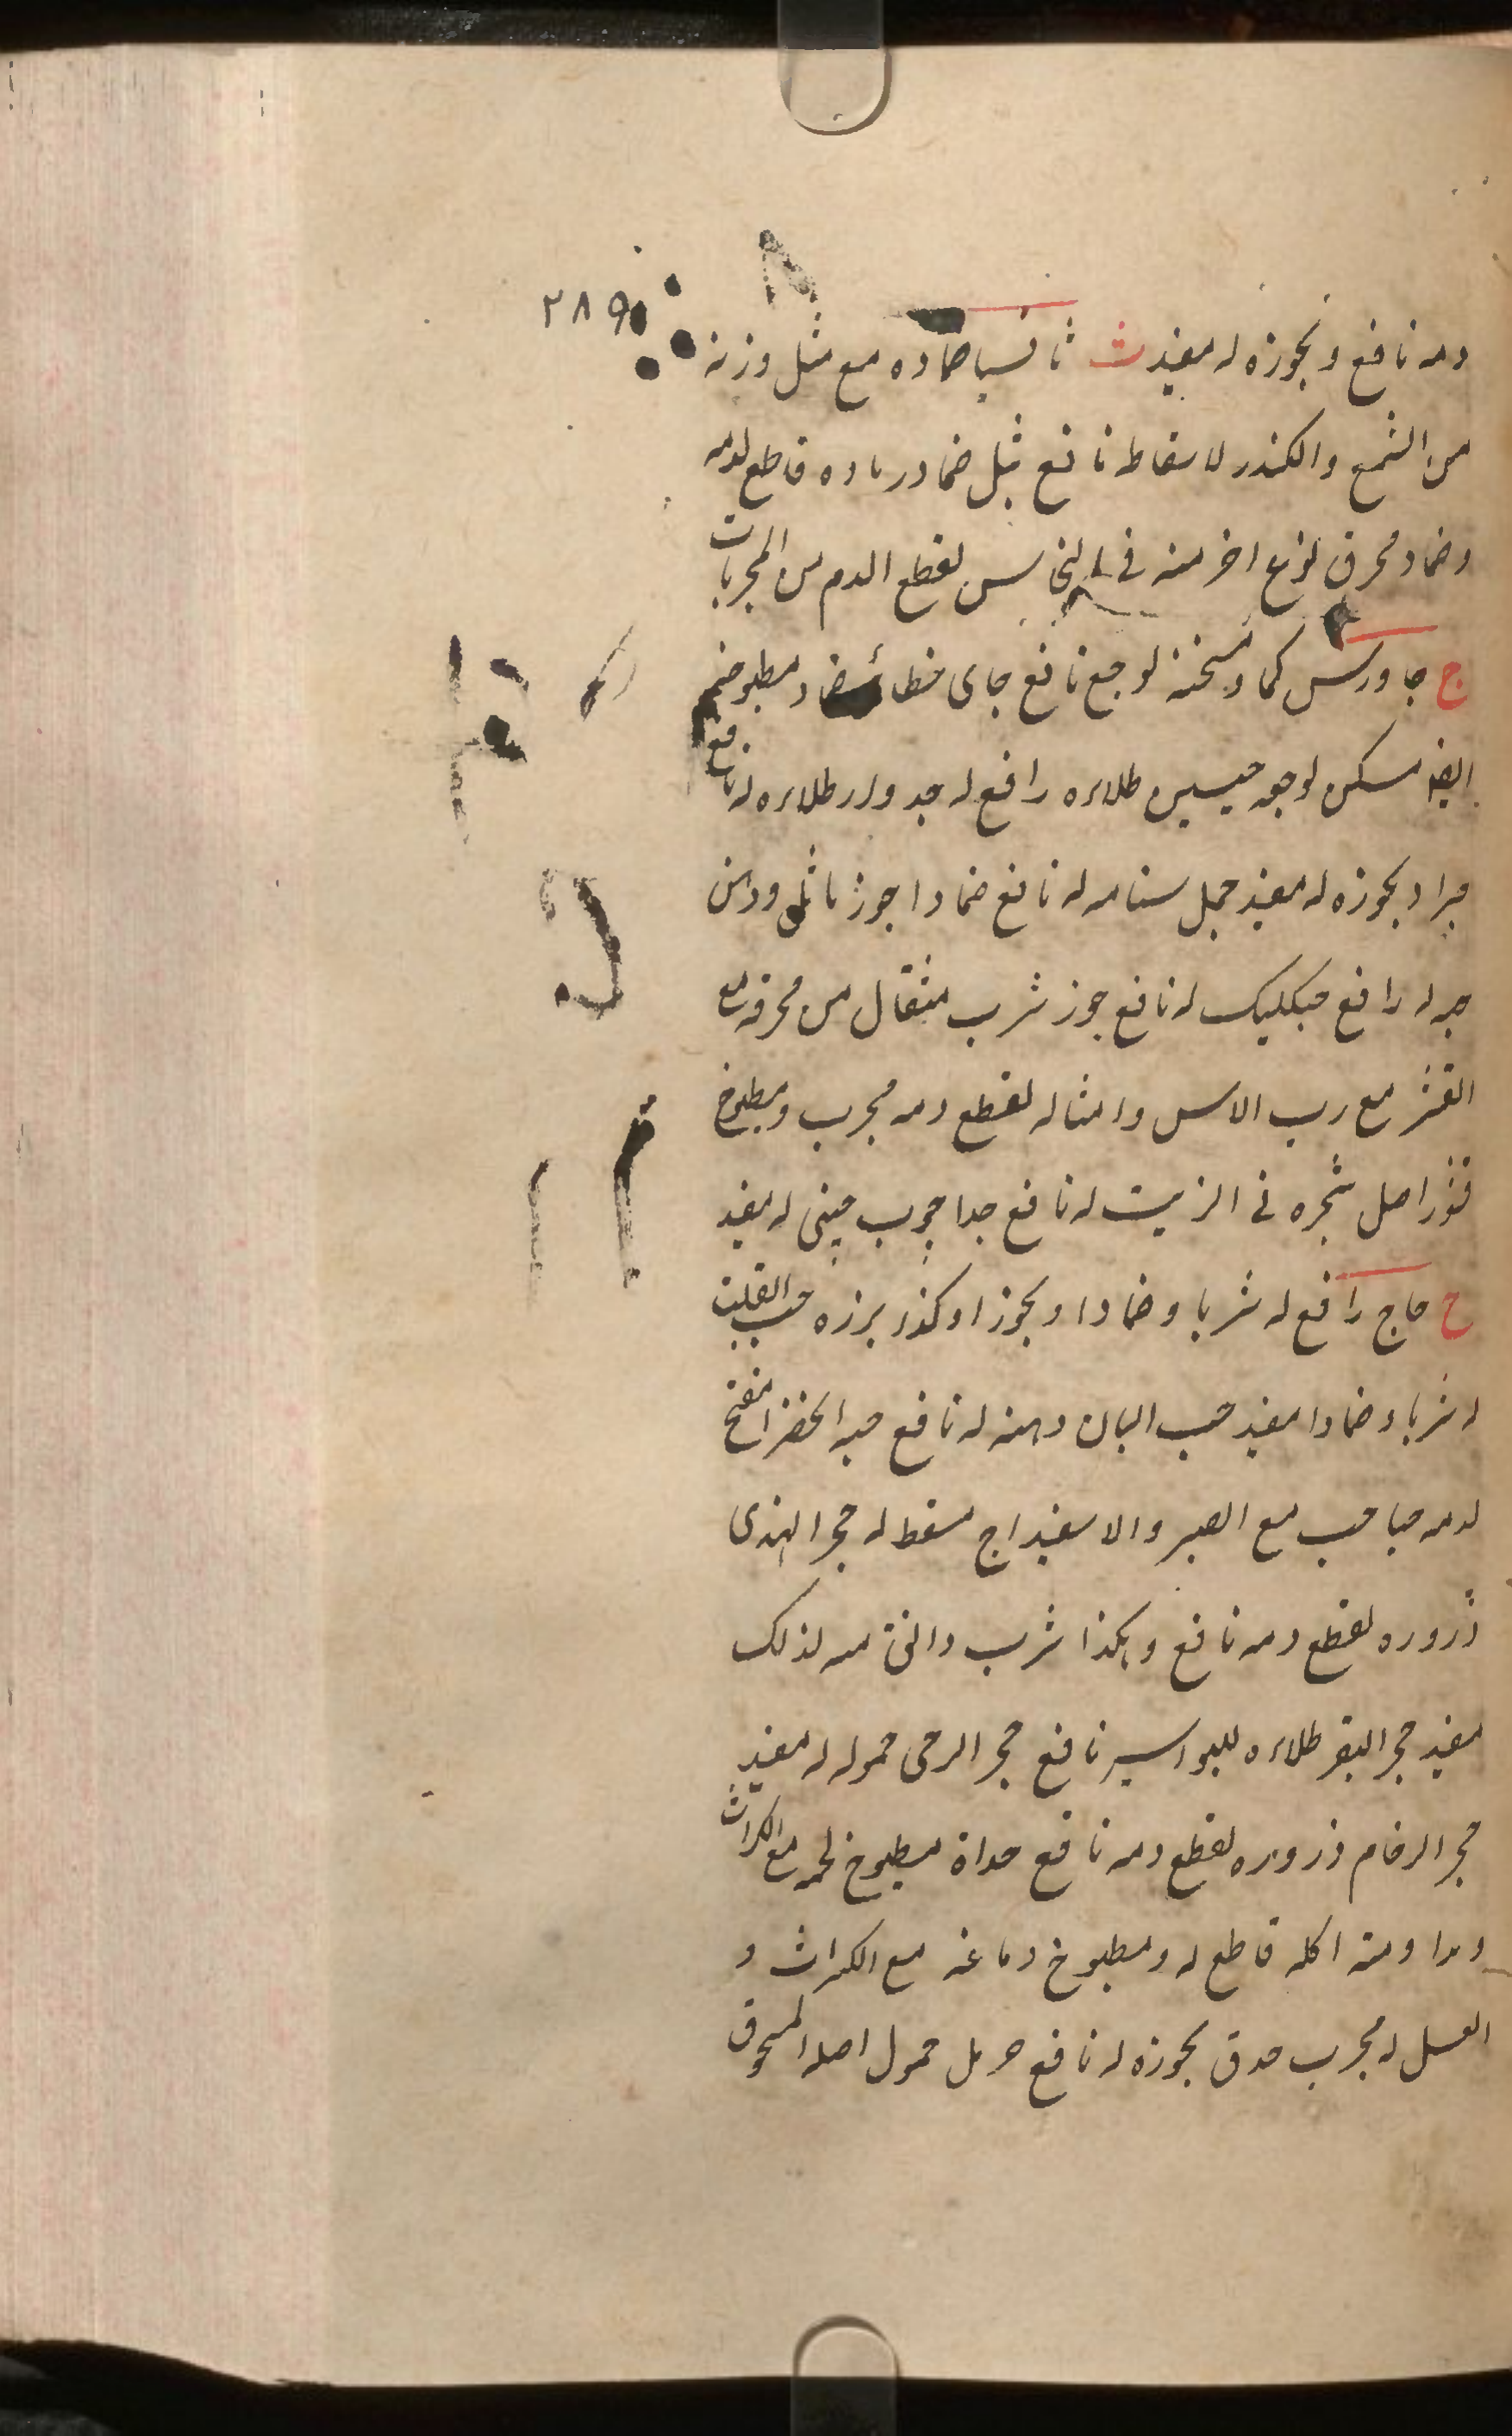 ٢٨٩
دمه نافع و بخوره له مفيد ث ثافسيا ضماده مع مثل وزنه
من الشمع والكندر لاسقاط نافع ثيل ضماد رماده قاطع لدمه
وضماد محرق نوع اخر منه في لقطع الدم من المجربات
ج جاورس كماد مسخنه لوجع نافع جاى خطائى ضماد مطبوخه
ايضا مسكن لوجعه طلاءه رافع له جدوار طلاءه له نافع
جراد بخوره له مفيد جمل سنامه له نافع ضمادا جوز ماثل ودهن
حبه له رافع له نافع جوز شرب مثقال من محرقه مع
القشر مع رب الاس وامثاله لقطع دمه مجرب ومطبوخ
قشر اصل شجره في الزيت له نافع جدا چوب چينى له مفيد
ح حاج رافع له شربا وضمادا وبخورا وكذا بزره حب القلت
له شربا وضمادا مفيد حب البان دهنه له نافع حبه الخضرا مفتح
لدمه حباحب مع الصبر والاسفيداج مسقط له حجر الهندى
ذروره لقطع دمه نافع وهكذا شرب دانق منه لذلك
مفيد حجر البقر طلاءه للبواسير نافع حجر الرحى حموله له مفيد
حجر الرخام ذروره لقطع دمه نافع حداة مطبوخ لحمه مع الكراث
ومداومة اكله قاطع له ومطبوخ دماغه مع الكراث و
العسل له مجرب حدق بخوره له نافع حرمل حمول اصله المسحوق